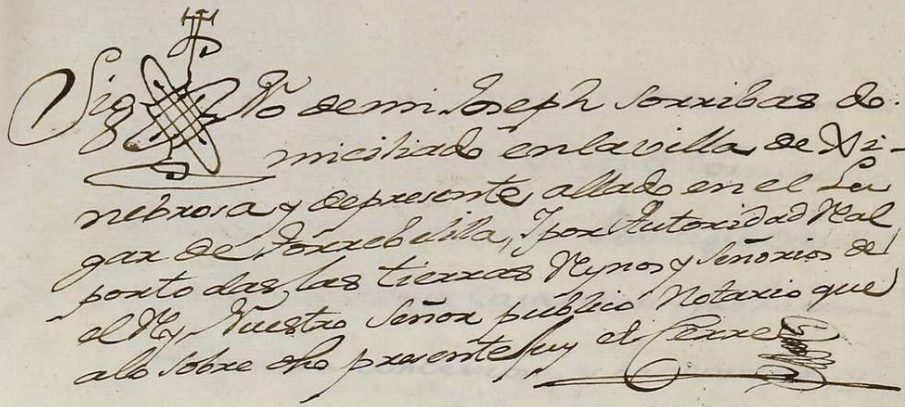 Sig no de mi Joseph Sorribas do-
miciliado en la villa de Xi-
nebrosa y de presente allado en el Lu
gar de Torrebelilla, Y por Autoridad Real
por to das las tierras Rynos y Señorios del
el Ry, Nuestro Señor publico Notario que
alo sobre dho presente fuy et Cerre